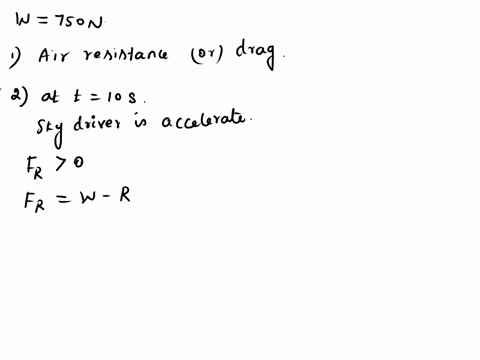 W = 750N
1) Air resistance (or) drag.
2) at t = 10 s.
Sky driver is accelerate.
F_R > 0
F_R = W - R